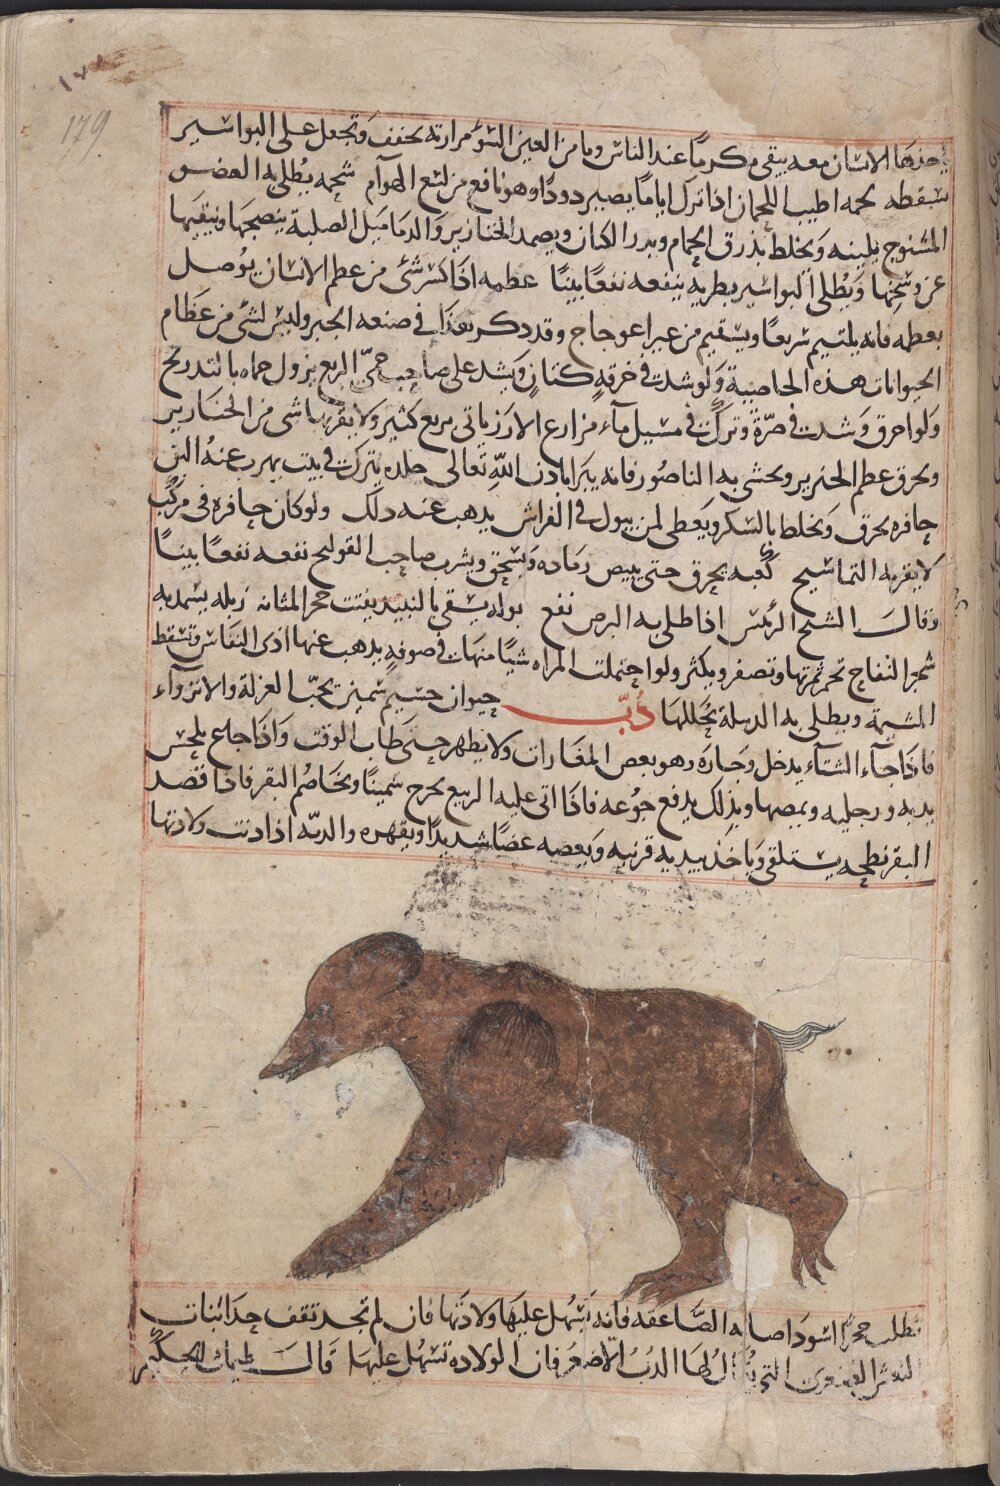 ١٧٨
179
ياخذها الانسان معه يبقى مكرما عند الناس ويامن العين السوء مرارته تجفف وتجعل على البواسير
تسقطه لحمه اطيب اللحمان اذا ترك اياما يصير دودا وهو نافع من لسع الهوام شحمه يطلى به العضو
المتشنج يلينه ويخلط بذرق الحمام وبزر الكتان ويضمد الخنازير والدماميل الصلبة ينضجها وينقيها
عن وسخها ويطلى البواسير بطريه ينفعه نفعا بينا عظمه اذا كسر شئ من عظم الانسان يوصل
بعظمه فانه يلتئم سريعا ويستقيم من غير اعوجاج وقد ذكر هذا في صنعه الجبر وليس لشئ من عظام
الحيوانات هذه الخاصية ولو شدت في خرقة كتان ويشد على صاحب حمى الربع يزول حماه بالتدريج
ولو احرق وشدت في صرة وتركت في مسيل ماء مزارع الارز ياتي بريع كثير ولا يقربها شى من الخنازير
ويحرق عظم الخنزير ويحشى به الناصور فانه يبرا باذن الله تعالى جلده يترك في بيت يهرب عنه البق
حافره يحرق ويخلط بالسكر ويعطى لمن يبول في الفراش يذهب عنه ذلك ولو كان حافره في مركب
لا يقربه التماسيح كعبه يحرق حتى يبيض رماده ويسحق ويشرب صاحب القولنج نفعه نفعا بينا
وقال الشيخ الرئيس اذا طلى به البرص نفع بوله يسقى بالنبيذ يفتت حجر المثانه زبله يسمد به
شجر التفاح تحمر ثمرتها وتصفر ويكثر ولو احتملت المراه شيا منها في صوفه يذهب عنها اذى النفاس وتسقط
المشيمة ويطلى به الدملة يحللها دب حيوان جسيم سمين يحب العزلة والانزواء
فاذا جاء الشتاء يدخل وجاره وهو بعض المغارات ولا يظهر حتى طاب الوقت واذا جاع يلحس
يديه ورجليه ويمصها وبذلك يدفع جوعه فاذا اتى عليه الربيع يخرج سمينا ويخاصم البقر فاذا قصد
البقر نطحه يستلقى وياخذ بيديه قرنيه ويعضه عضا شديدا ويقهره والدبه اذا دنت ولادتها
تطلب حجرا اسود اصابه الصاعقه فانه يسهل عليها ولادتها فان لم تجد تقف حذا بنات
النعش الصغرى التي يقال لها الدب الاصغر فان الولاده تسهل عليها قال سليمان الحكيم